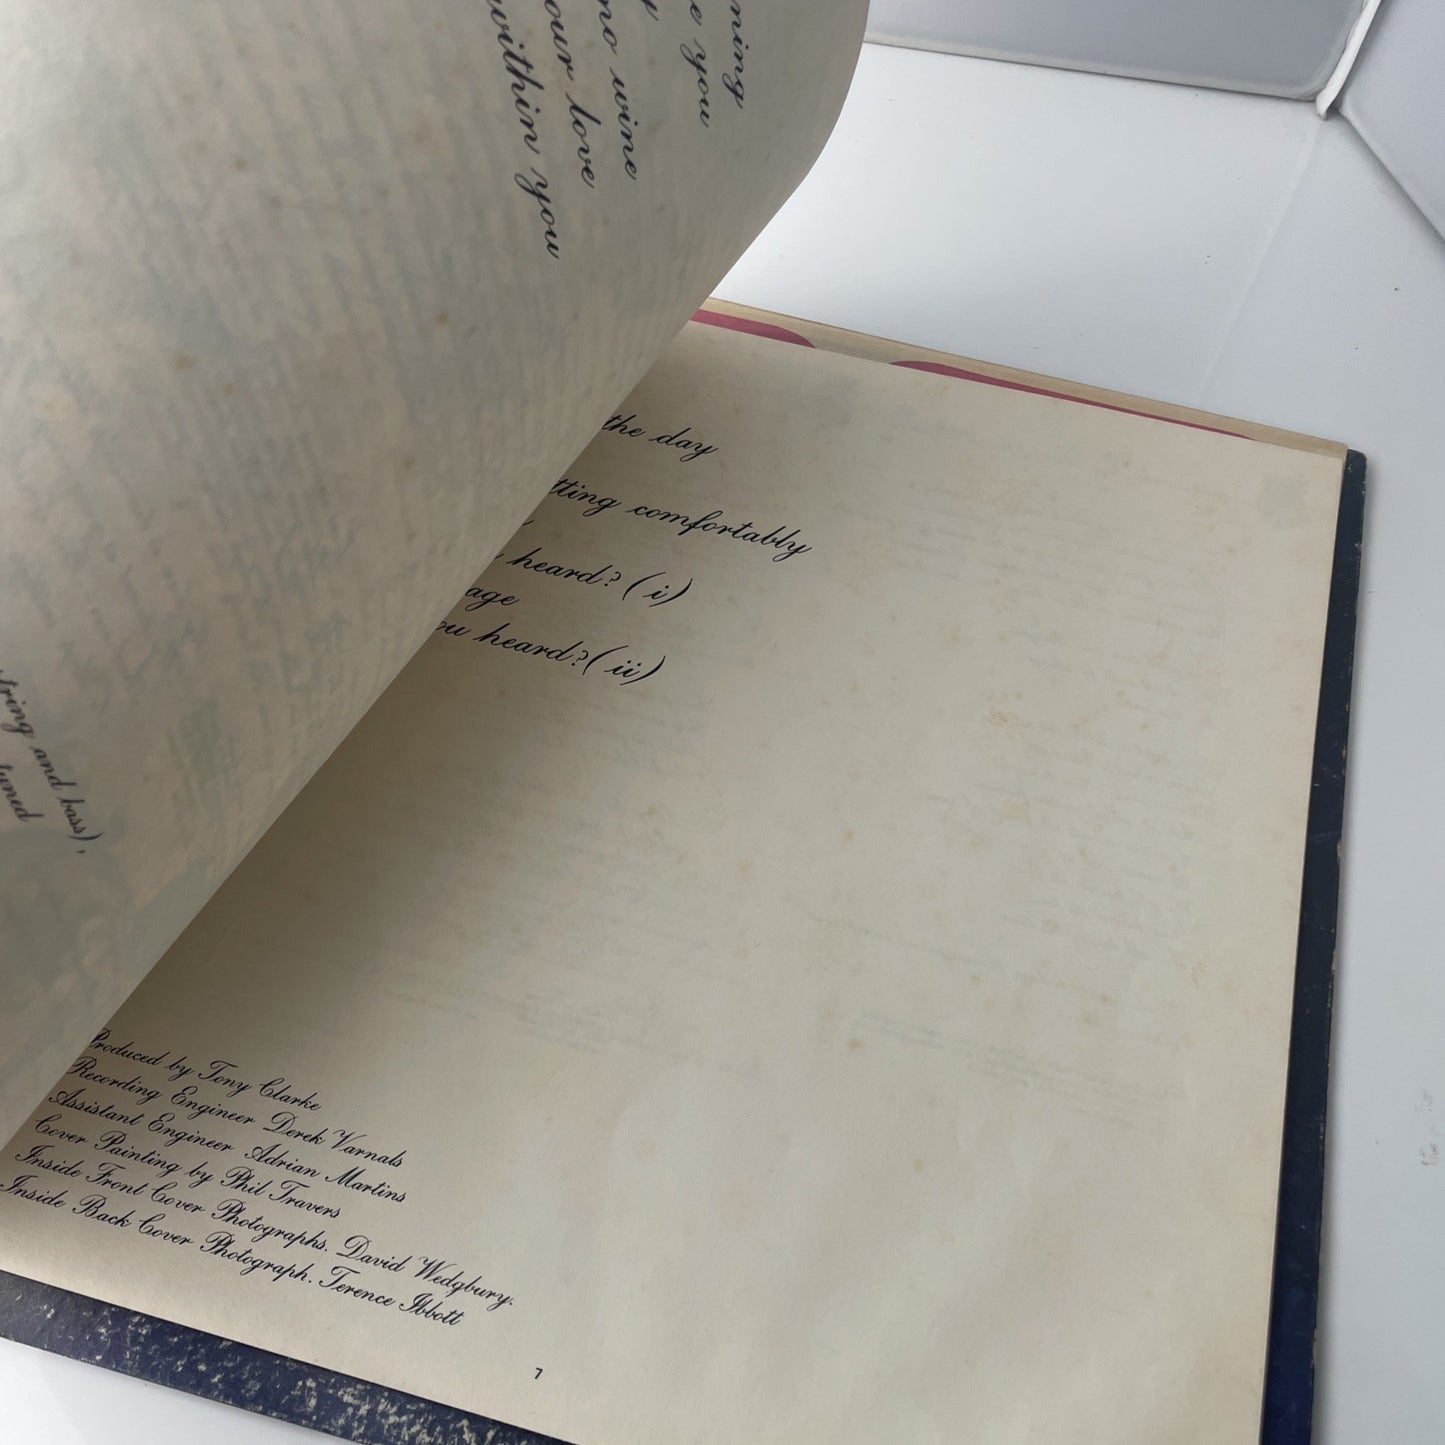 ning
e you
no wine
y
our love
within you
string and bass),
tuned
the day
tting comfortably
heard? (i)
age
ou heard? (ii)
Produced by Tony Clarke
Recording Engineer Derek Varnals
Assistant Engineer Adrian Martins
Cover Painting by Phil Travers
Inside Front Cover Photographs. David Wedgbury.
Inside Back Cover Photograph. Terence Ibbott
7